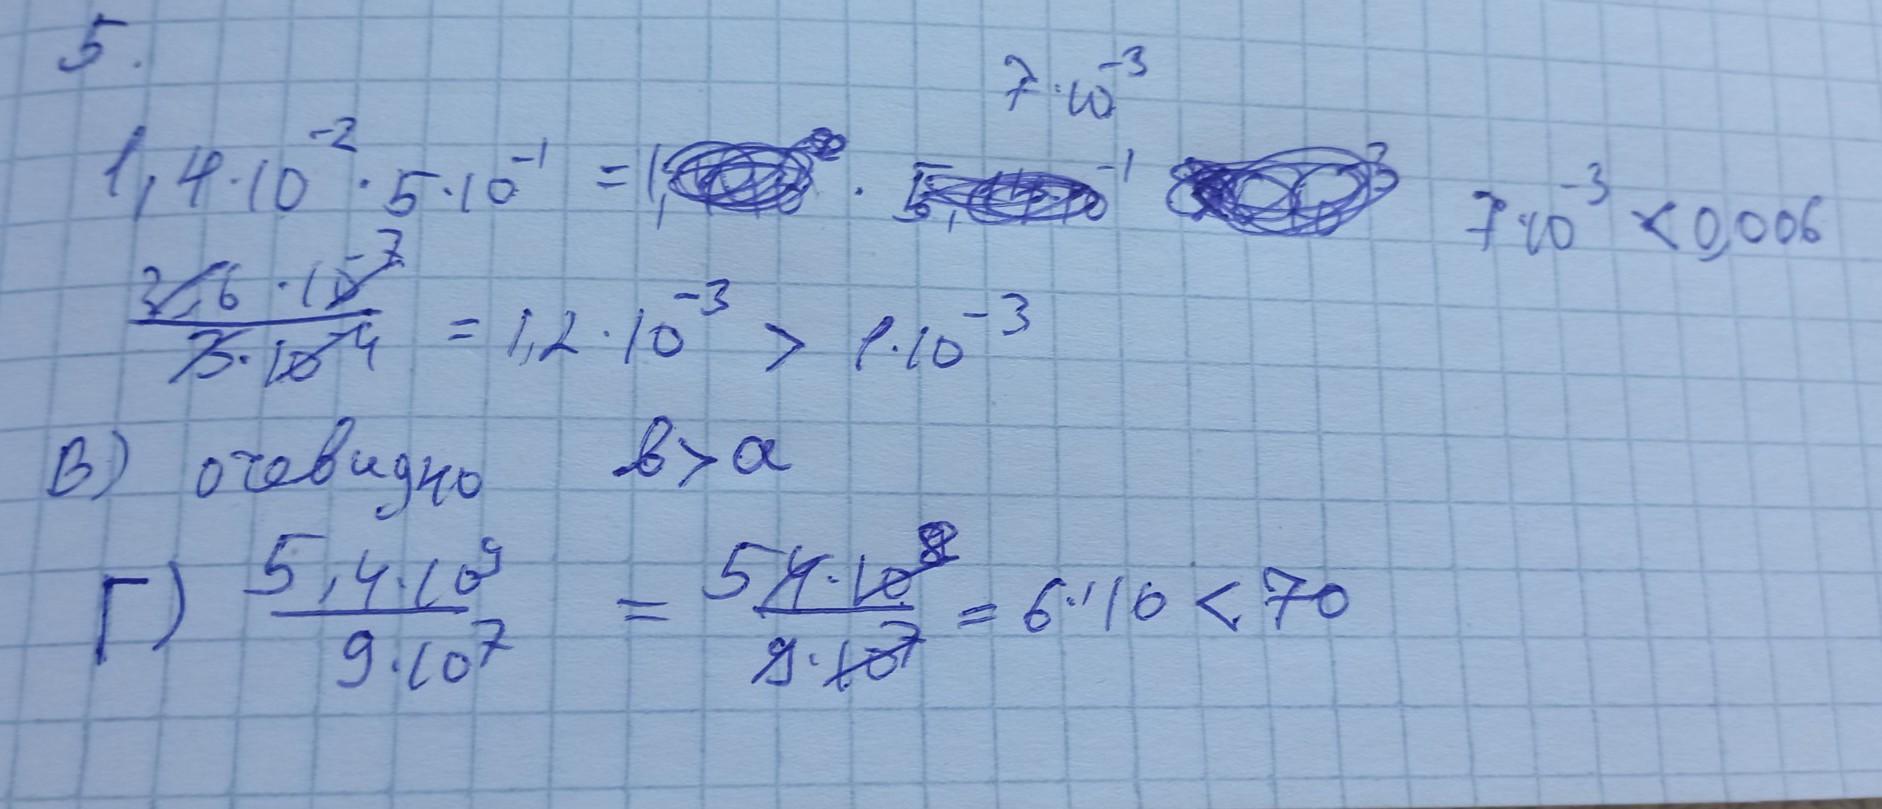 5.
7·10⁻³
1,4·10⁻²·5·10⁻¹ = 1, · 5, ⁻¹ 7·10⁻³ < 0,006
3,6·10⁻⁷ / 3·10⁻⁴ = 1,2·10⁻³ > 1·10⁻³
В) очевидно в > а
Г) 5,4·10⁹ / 9·10⁷ = 54·10⁸ / 9·10⁷ = 6·10 < 70